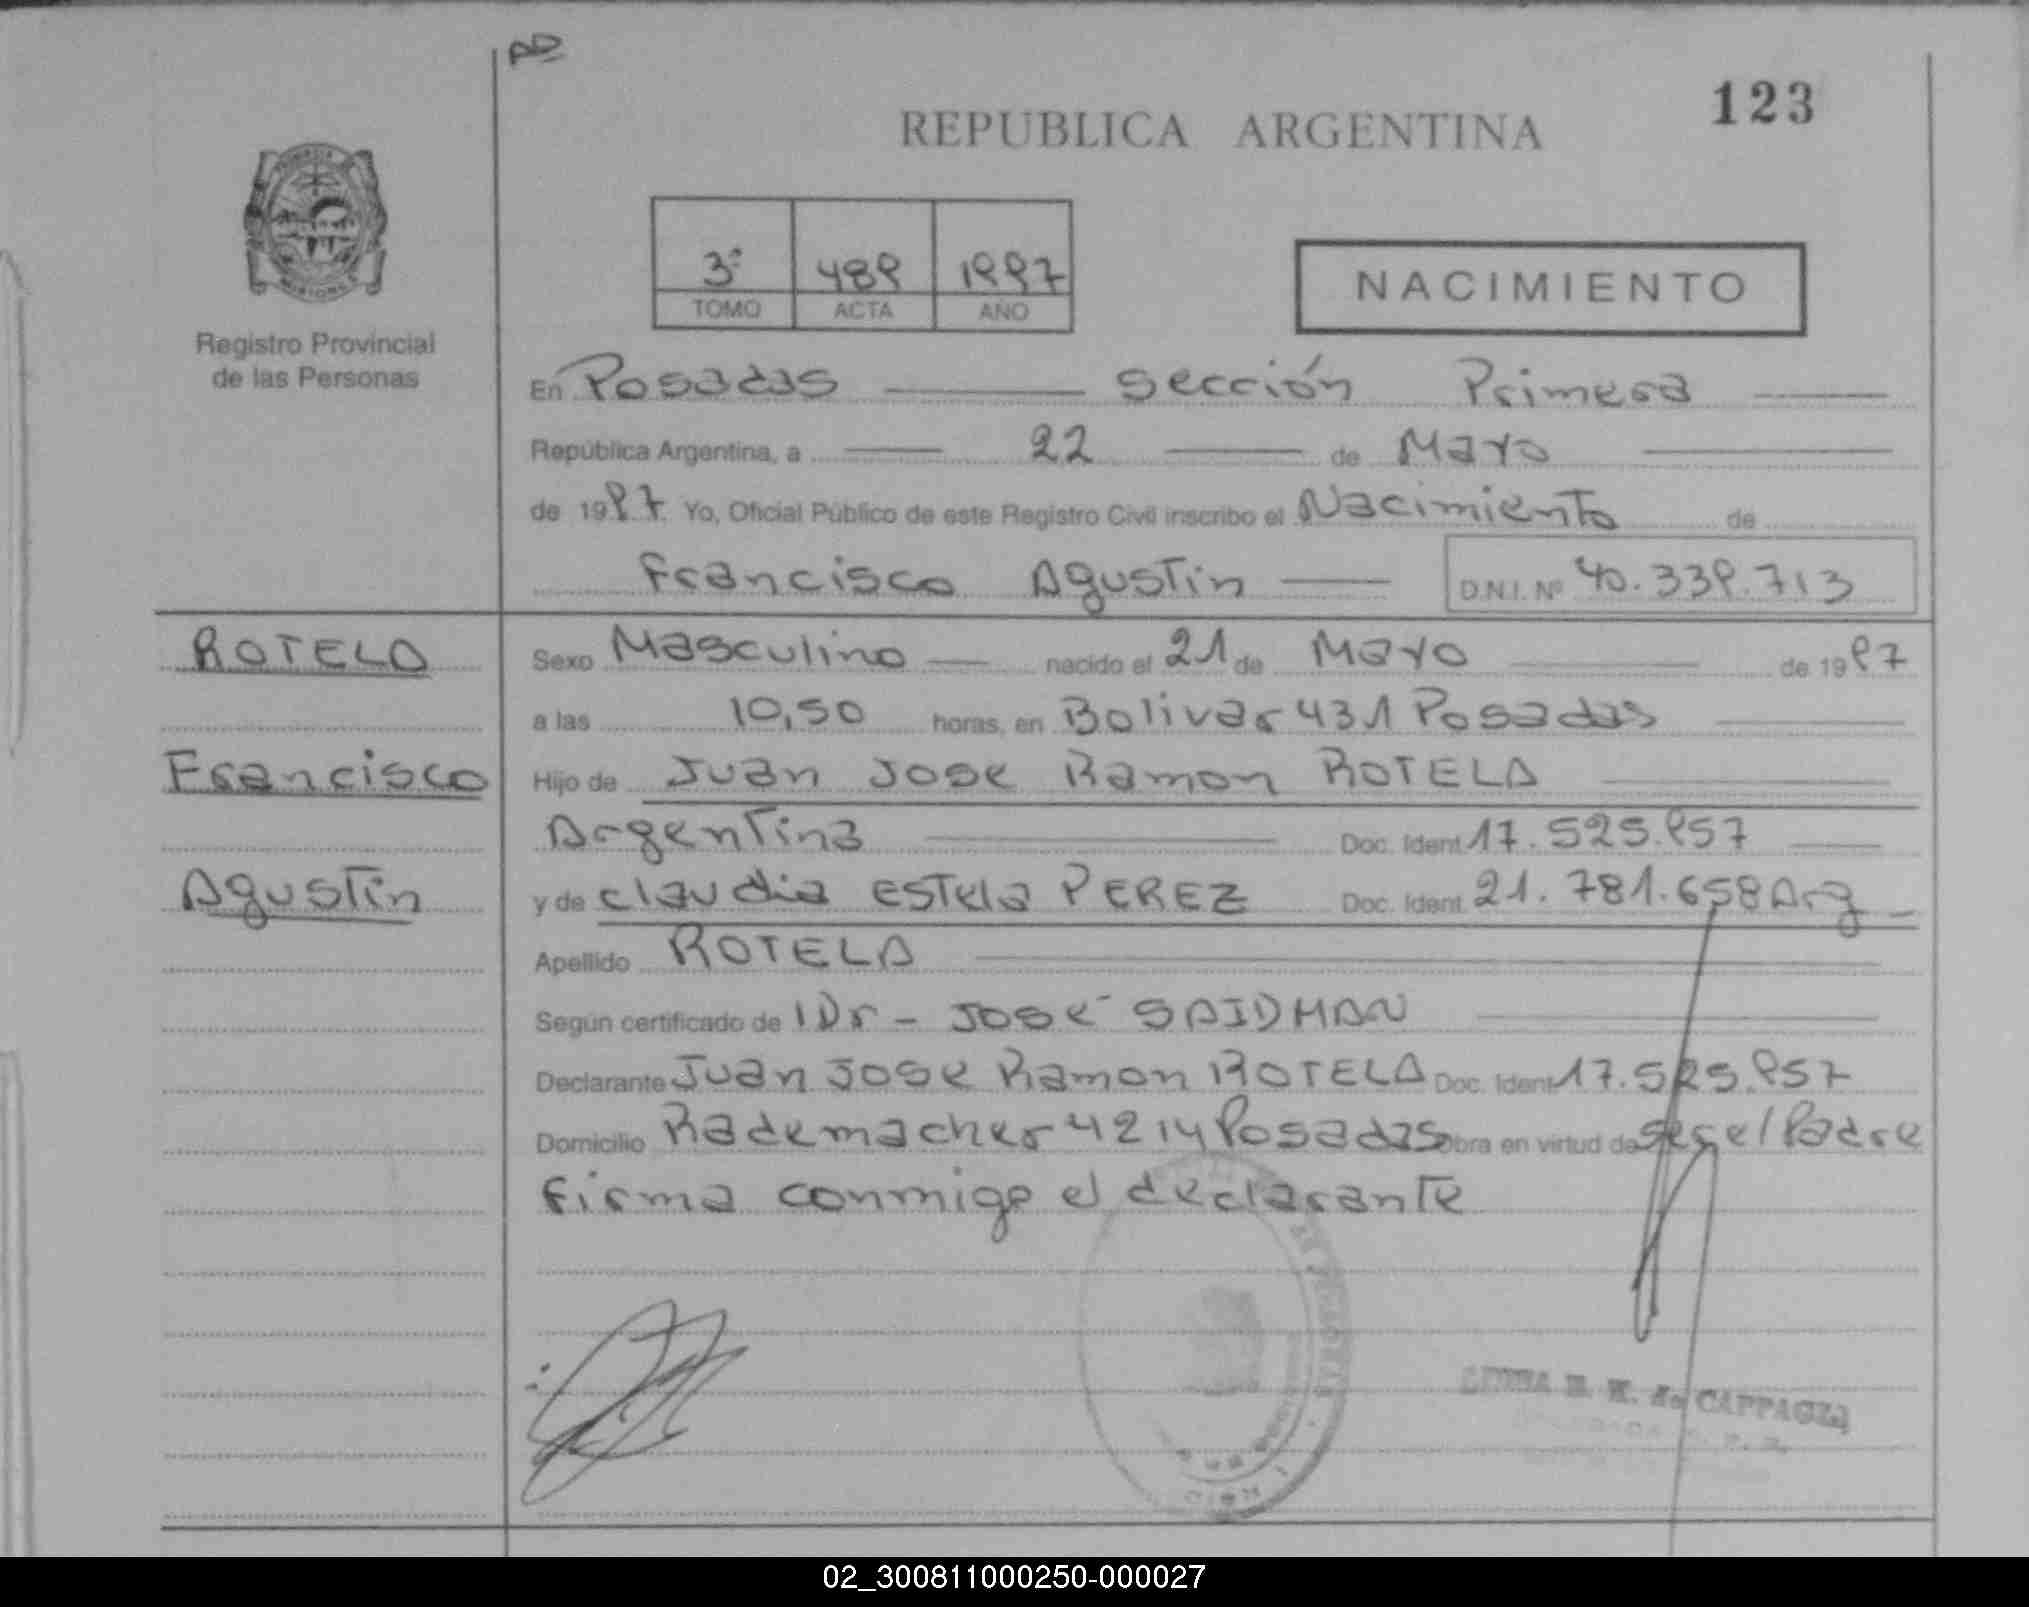 AD
123
REPUBLICA ARGENTINA
3º 489 1997
TOMO ACTA AÑO
NACIMIENTO
Registro Provincial
de las Personas
En Posadas sección Primera
República Argentina, a 22 de Mayo
de 1997 Yo, Oficial Público de este Registro Civil inscribo el Nacimiento de
Francisco Agustin D.N.I. Nº 40.339.713
ROTELA
Francisco
Agustin
Sexo Masculino nacido el 21 de Mayo de 1997
a las 10,50 horas, en Bolivar 431 Posadas
Hijo de Juan Jose Ramon ROTELA
Argentina Doc. Ident 17.525.957
y de Claudia Estela PEREZ Doc. Ident. 21.781.658 Arg
Apellido ROTELA
Según certificado de Dr - JOSÉ SAIDMAN
Declarante Juan Jose Ramon ROTELA Doc. Ident 17.525.957
Domicilio Rademacher 4214 Posadas Obra en virtud de ser el Padre
firma conmigo el declarante
de CAPPAGLI
02_300811000250-000027